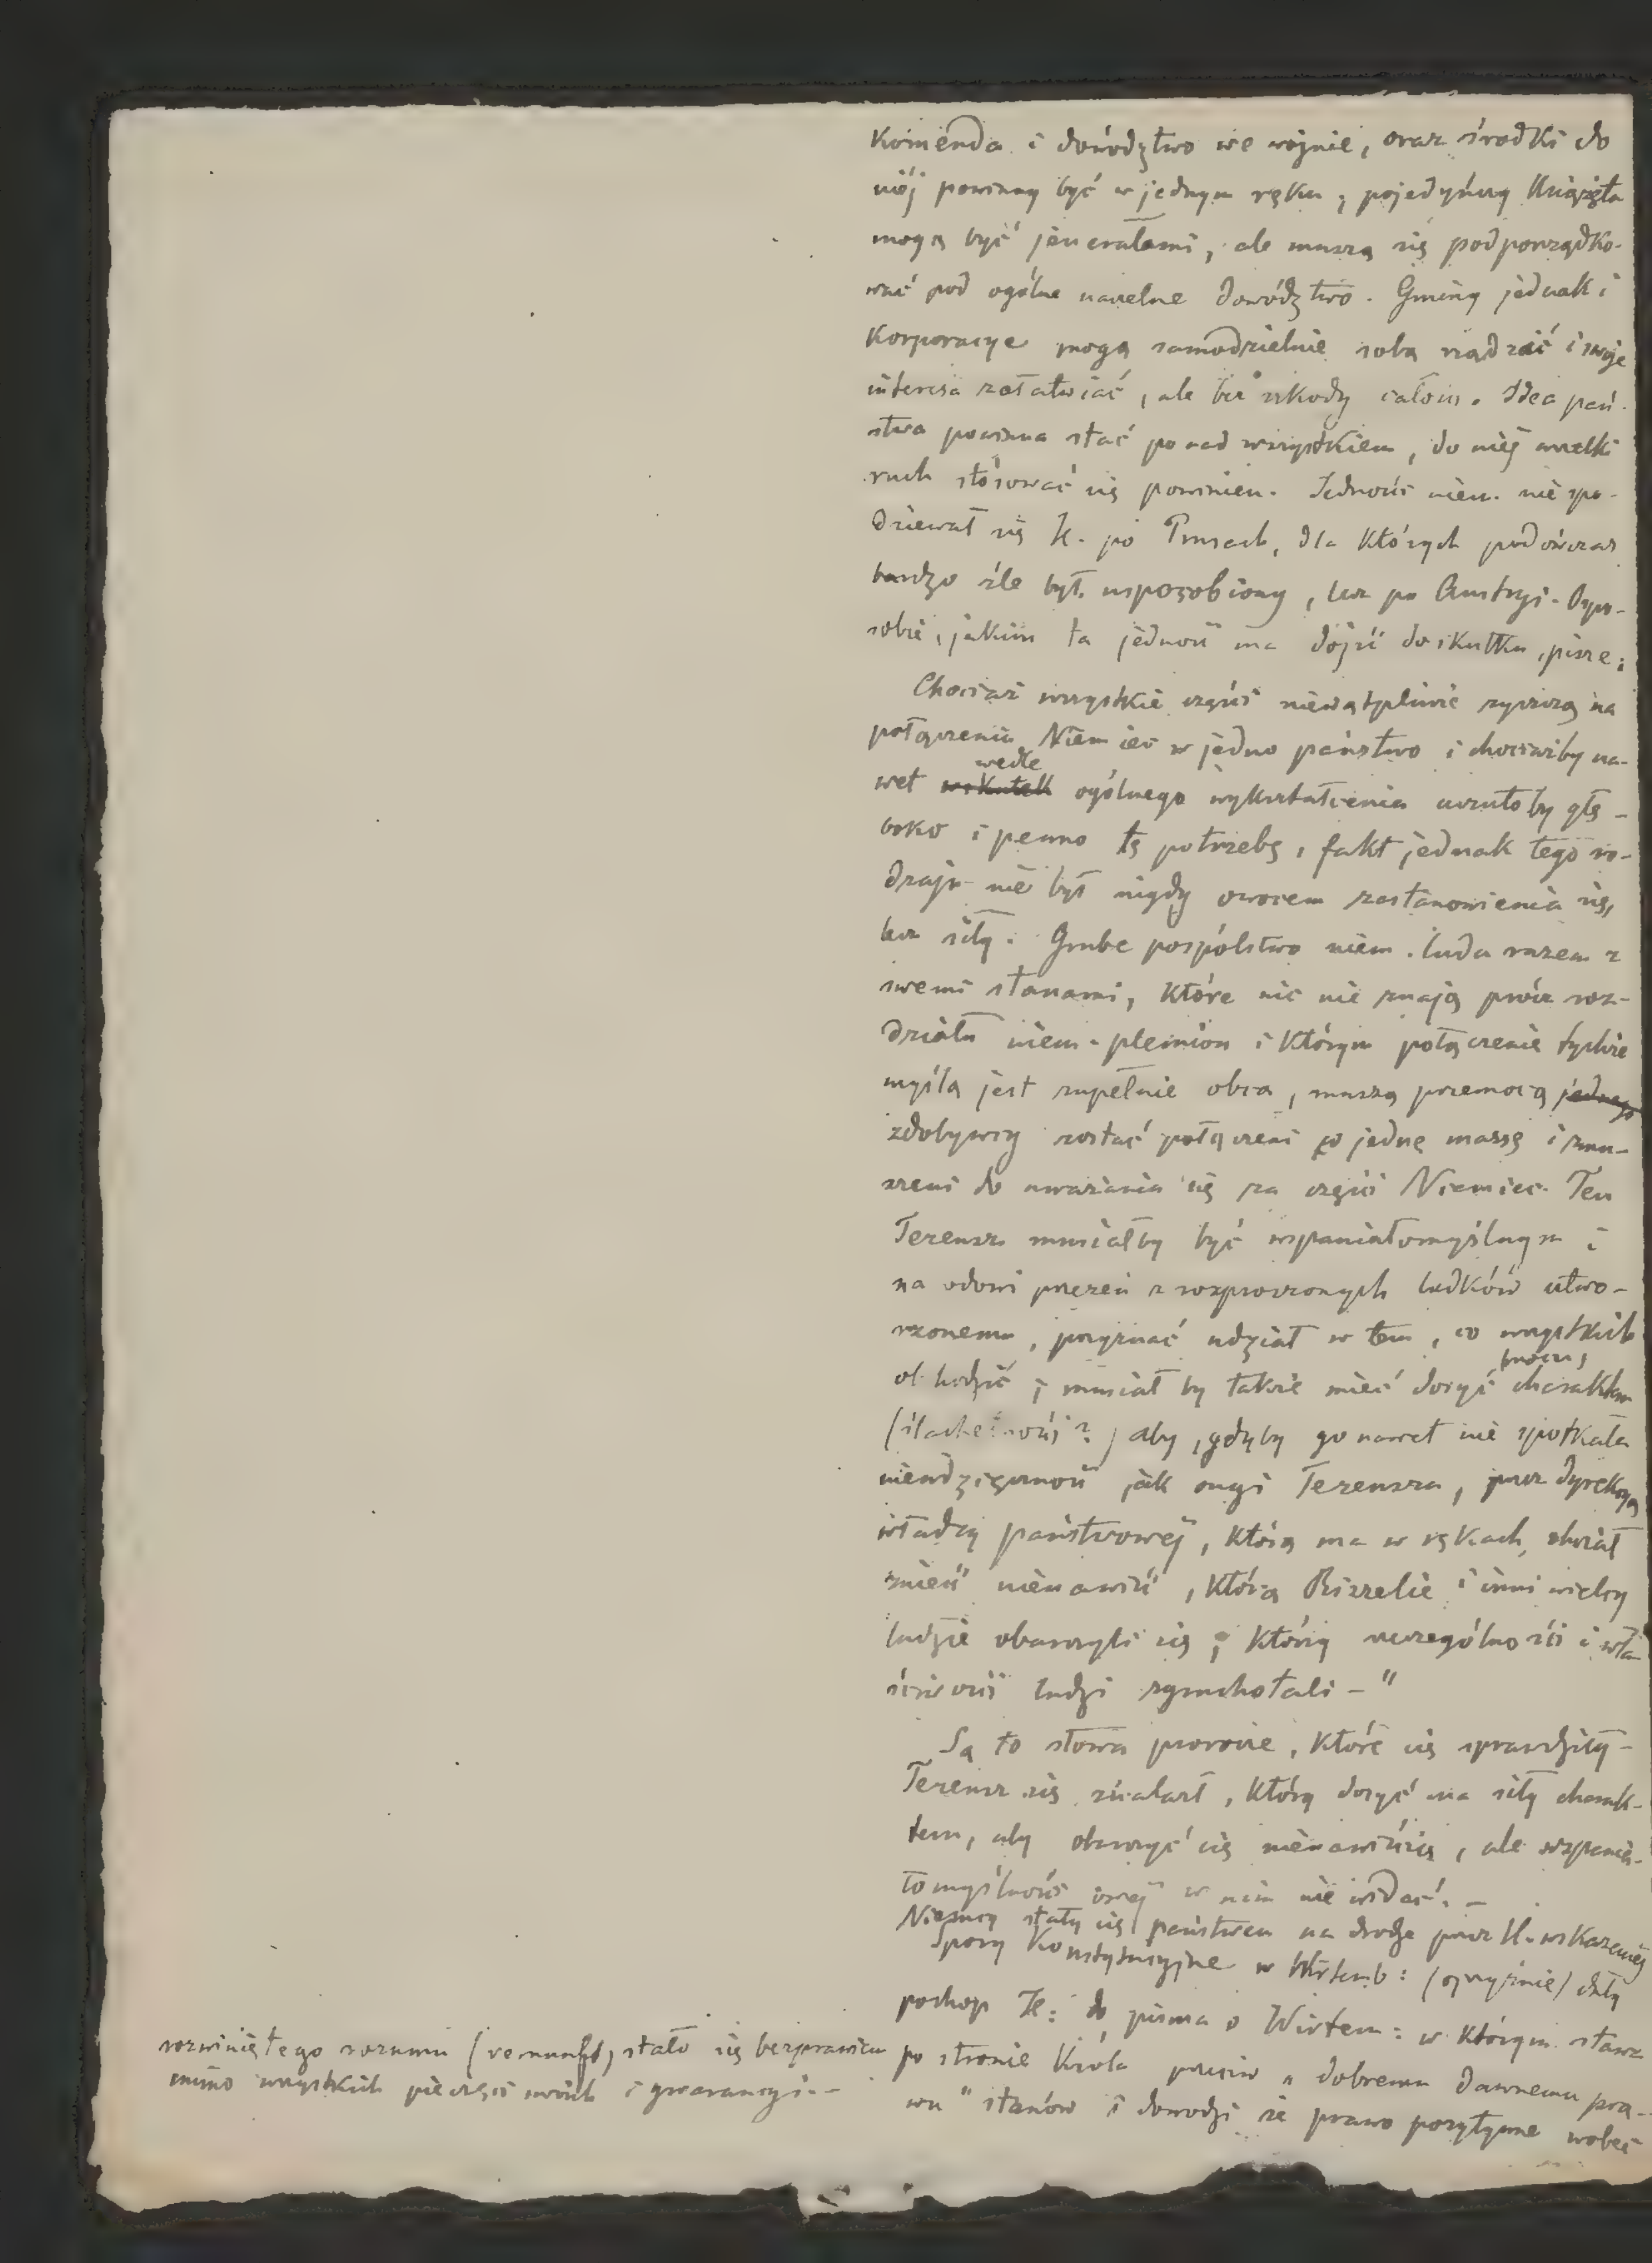 Komenda i dowództwo we wojnie, oraz środki do
niéj powinny być w jednym ręku; pojedyńczy Książęta
mogą być jenerałami, ale muszą się podporządko-
wać pod ogólne naczelne dowództwo. Gminy jednak i
Korporacye mogą samodzielnie sobą rządzić i swoje
interesa załatwiać, ale bez szkody całości. Idea pań-
stwa powinna stać ponad wszystkiem, do niéj wszelki
ruch stósować się powinien. Jedności niem. nie spo-
dziewał się H. po Prusach, dla których podówczas
bardzo źle był usposobiony, lecz po Austryi. O spo-
sobie, jakim ta jedność ma dojść do skutku, pisze:
Chociaż wszystkie części niewątpliwie zyszczą na
połączeniu Niemiec w jedno państwo i chociażby na-
wet wedle ogólnego wykształcenia uczułoby głę-
boko i pewno tę potrzebę, fakt jednak tego ro-
dzaju nie był nigdy owocem zastanowienia się,
lecz siły. Grube pospólstwo niem. ludu razem z
swemi stanami, które nic nie znają prócz roz-
działu niem. plemion i którym połączenie tychże
myślą jest zupełnie obcą, muszą przemocą jednego
zdobywcy zostać połączeni w jednę massę i zmu-
szeni do uważania się za część Niemiec. Ten
Tezeusz musiałby być wspaniałomyślnym i
na odowi przezeń z rozproszonych ludków utwo-
rzonemu, przyznać udział w tem, co wszystkich
obchodzić; musiał by także mieć dosyć mocny charakter
(szlachetności?) aby, gdyby go nawet nie spotkała
niewdzięczność jak ongi Tezeusza, przez dyrekcyą
władzy państwowej, którą ma w rękach, chciał
znieść nienawiść, którą Riszelie i inni wielcy
ludzie obarczyli się, którzy szczególności i wła-
ściwości ludzi zgruchotali -"
Są to słowa prorocze, które się sprawdziły -
Tezeusz się znalazł, który dosyć ma siły charak-
teru, aby obarczyć się nienawiścią, ale wspania-
łomyślności owej w nim nie widać. -
Niemcy stały się państwem na drodze przez H. wskazanej
Spory Konstytucyjne w Wirtemb: (ojczyźnie) dały
pochop H: do pisma o Wirtem: w którym staw
po stronie Króla przeciw „dobremu dawnemu pra-
wu" stanów i dowodzi że prawo pozytywne wobec
rozwiniętego rozumu (vernunft) stało się bezprawiem
mimo wszystkich pieczęci swoich i gwarancyi. -